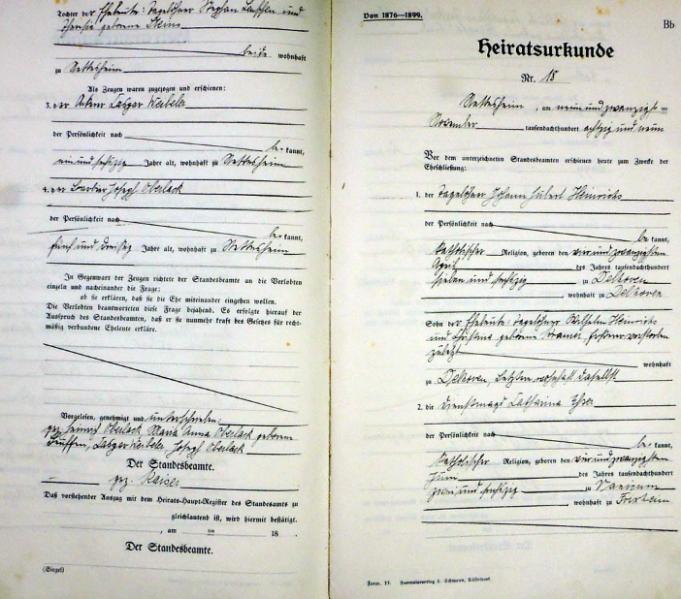 Tochter der Eheleute: Tagelöhner Stephan und
geborene
beide wohnhaft
zu Nettesheim
Als Zeugen waren zugezogen und erschienen:
3. der Ackerer Latzer Keibeler
der Persönlichkeit nach
be kannt,
ein und sechzig Jahre alt, wohnhaft zu Nettesheim
4. der Joseph Oberlack
der Persönlichkeit nach
be kannt,
fünf und dreißig Jahre alt, wohnhaft zu Nettesheim
In Gegenwart der Zeugen richtete der Standesbeamte an die Verlobten
einzeln und nacheinander die Frage:
ob sie erklären, daß sie die Ehe miteinander eingehen wollen.
Die Verlobten beantworteten diese Frage bejahend. Es erfolgte hierauf der
Ausspruch des Standesbeamten, daß er sie nunmehr kraft des Gesetzes für recht-
mäßig verbundene Eheleute erkläre.
Vorgelesen, genehmigt und unterschrieben
gez. Heinrich Oberlack, Maria Anna Oberlack geborene
Latzer Keibeler, Joseph Oberlack
Der Standesbeamte.
gez. Kaiser
Daß vorstehender Auszug mit dem Heirats-Haupt-Register des Standesamts zu
gleichlautend ist, wird hiermit bestätigt.
, am ten 18 .
Der Standesbeamte.
(Siegel)
Von 1876—1899.
Bb
Heiratsurkunde
Nr. 18
Nettesheim, am neun und zwanzigst-
November tausendachthundert achtzig und neun
Vor dem unterzeichneten Standesbeamten erschienen heute zum Zwecke der
Eheschließung:
1. der Tagelöhner Johann Hubert Heinrichs
der Persönlichkeit nach
be kannt,
katholischer Religion, geboren den vier und zwanzigsten
April des Jahres tausendachthundert
sieben und sechzig zu Delhoven
, wohnhaft zu Delhoven
Sohn der Eheleute: Tagelöhner Wilhelm Heinrichs
und Christine geborene Kramer, Ersterer verstorben
zuletzt wohnhaft
zu Delhoven, Letztere wohnhaft daselbst
2. die Dienstmagd Catharina
der Persönlichkeit nach
be kannt,
katholischer Religion, geboren den vier und zwanzigsten
Juni des Jahres tausendachthundert
zwei und sechzig zu
, wohnhaft zu Frixheim